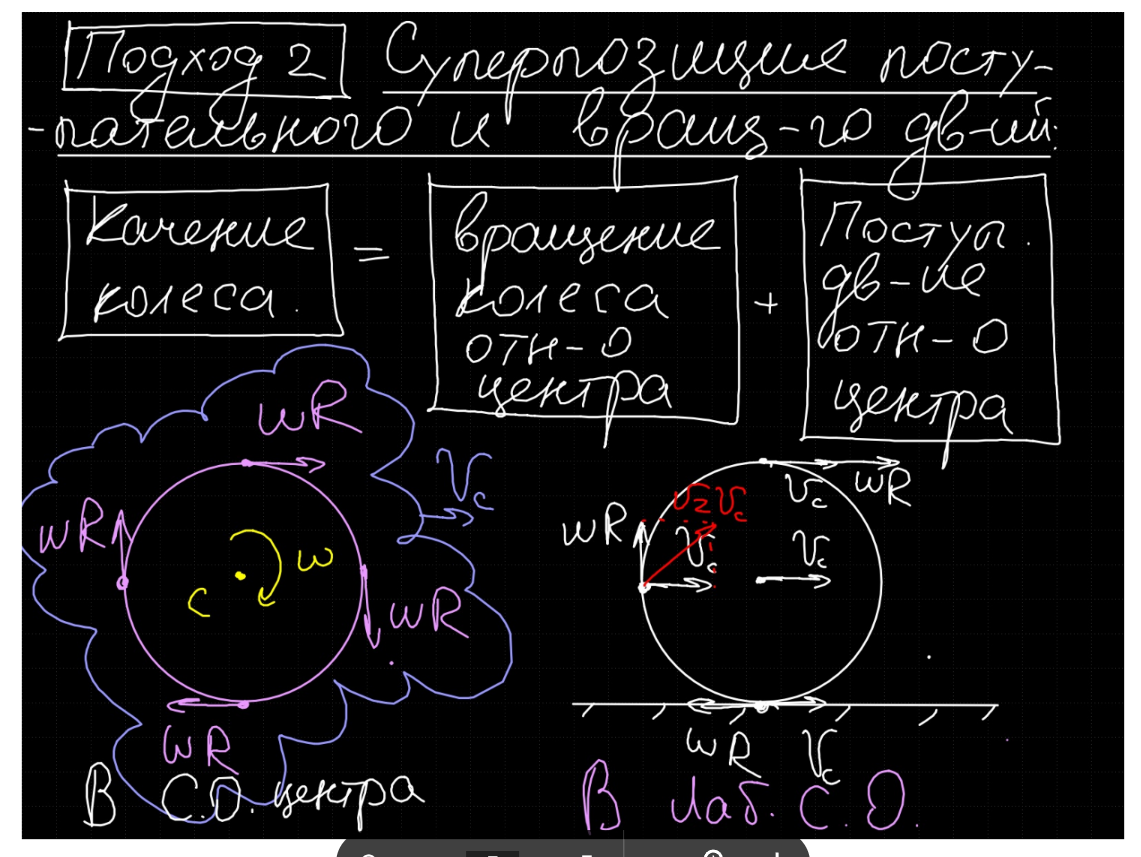 Подход 2 Суперпозиция посту-
-пательного и вращ-го дв-ий:
Качение
колеса.
=
вращение
колеса
отн-о
центра
+
Поступ.
дв-ие
отн-о
центра
ωR
V_c
ωR
C
ω
ωR
ωR
В С.О. центра
V_c
ωR
√2 V_c
ωR
V_c
V_c
ωR
V_c
В Лаб. С.О.